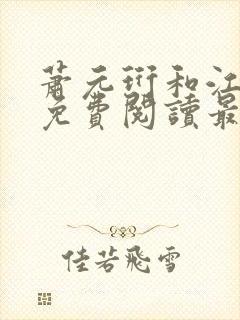 蕭元衍和江
免費閱讀最
佳若飛雪